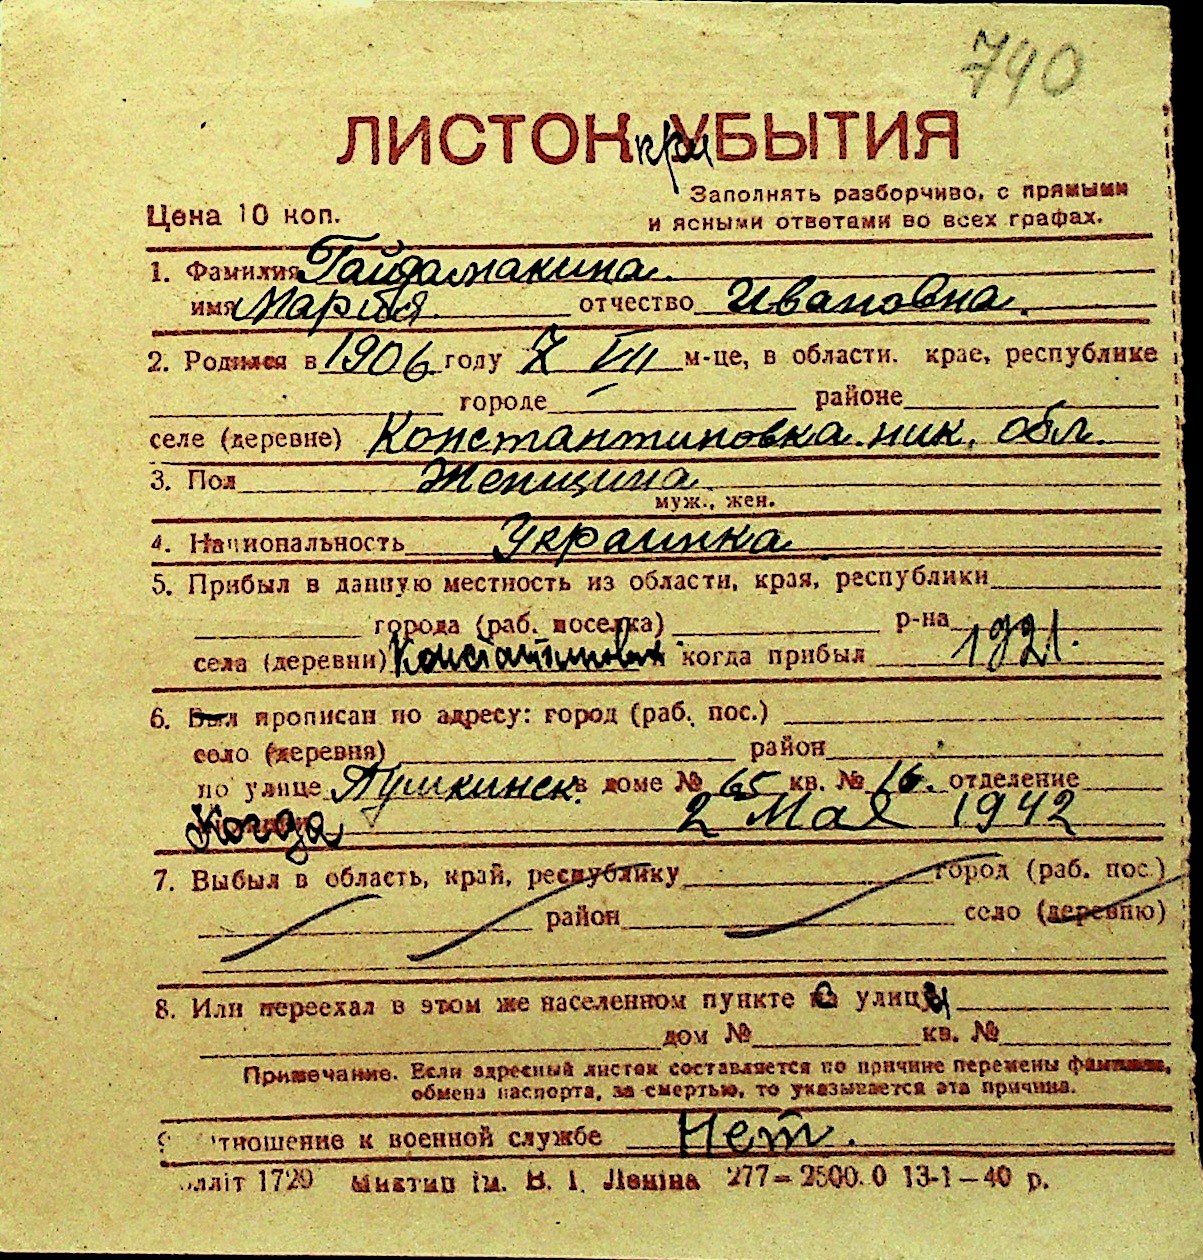 740
ЛИСТОК при УБЫТИЯ
Заполнять разборчиво, с прямыми
Цена 10 коп.
и ясными ответами во всех графах.
1. Фамилия Гайдамакина
имя Мария отчество Ивановна.
2. Родился в 1906 году 7 VII м-це, в области. крае, республике
городе районе
селе (деревне) Константиновка ник. обл.
3. Пол Женщина
муж., жен.
4. Национальность Украинка
5. Прибыл в данную местность из области, края, республики
города (раб. поселка) р-на
села (деревни) Константиновки когда прибыл 1921.
6. Был прописан по адресу: город (раб. пос.)
село (деревня) район
по улице Пушкинск. в доме № 65 кв. № 16. отделение
Когда 2 Мая 1942
7. Выбыл в область, край, республику город (раб. пос.)
район село (деревню)
8. Или переехал в этом же населенном пункте с улицы
дом № кв. №
Примечание. Если адресный листок составляется по причине перемены фамилии,
обмена паспорта, за смертью, то указывается эта причина.
9 тношение к военной службе Нет.
олліт 1720 Миктип ім. В. І. Леніна 277—2500.0 13-1—40 р.